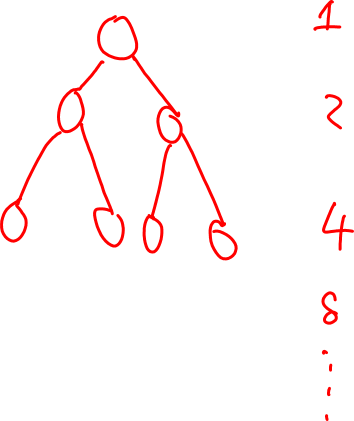 1
2
4
8
⋮